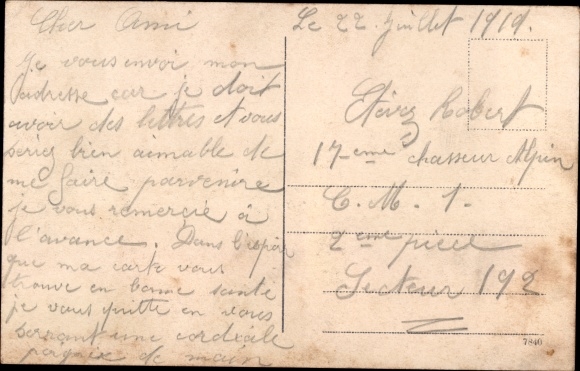 Cher Ami
Je vous envoi mon
adresse car je doit
avoir des lettres et vous
seriez bien aimable de
me faire parvenire
je vous remercie à
l'avance. Dans l'espoir
que ma carte vous
trouve en bonne santé
je vous quitte en vous
serrant une cordiale
poignée de main
Le 22 Juillet 1919.
Robert
17-eme chasseur Alpin
C. M. 1.
2eme pièce
Secteur 192
7840